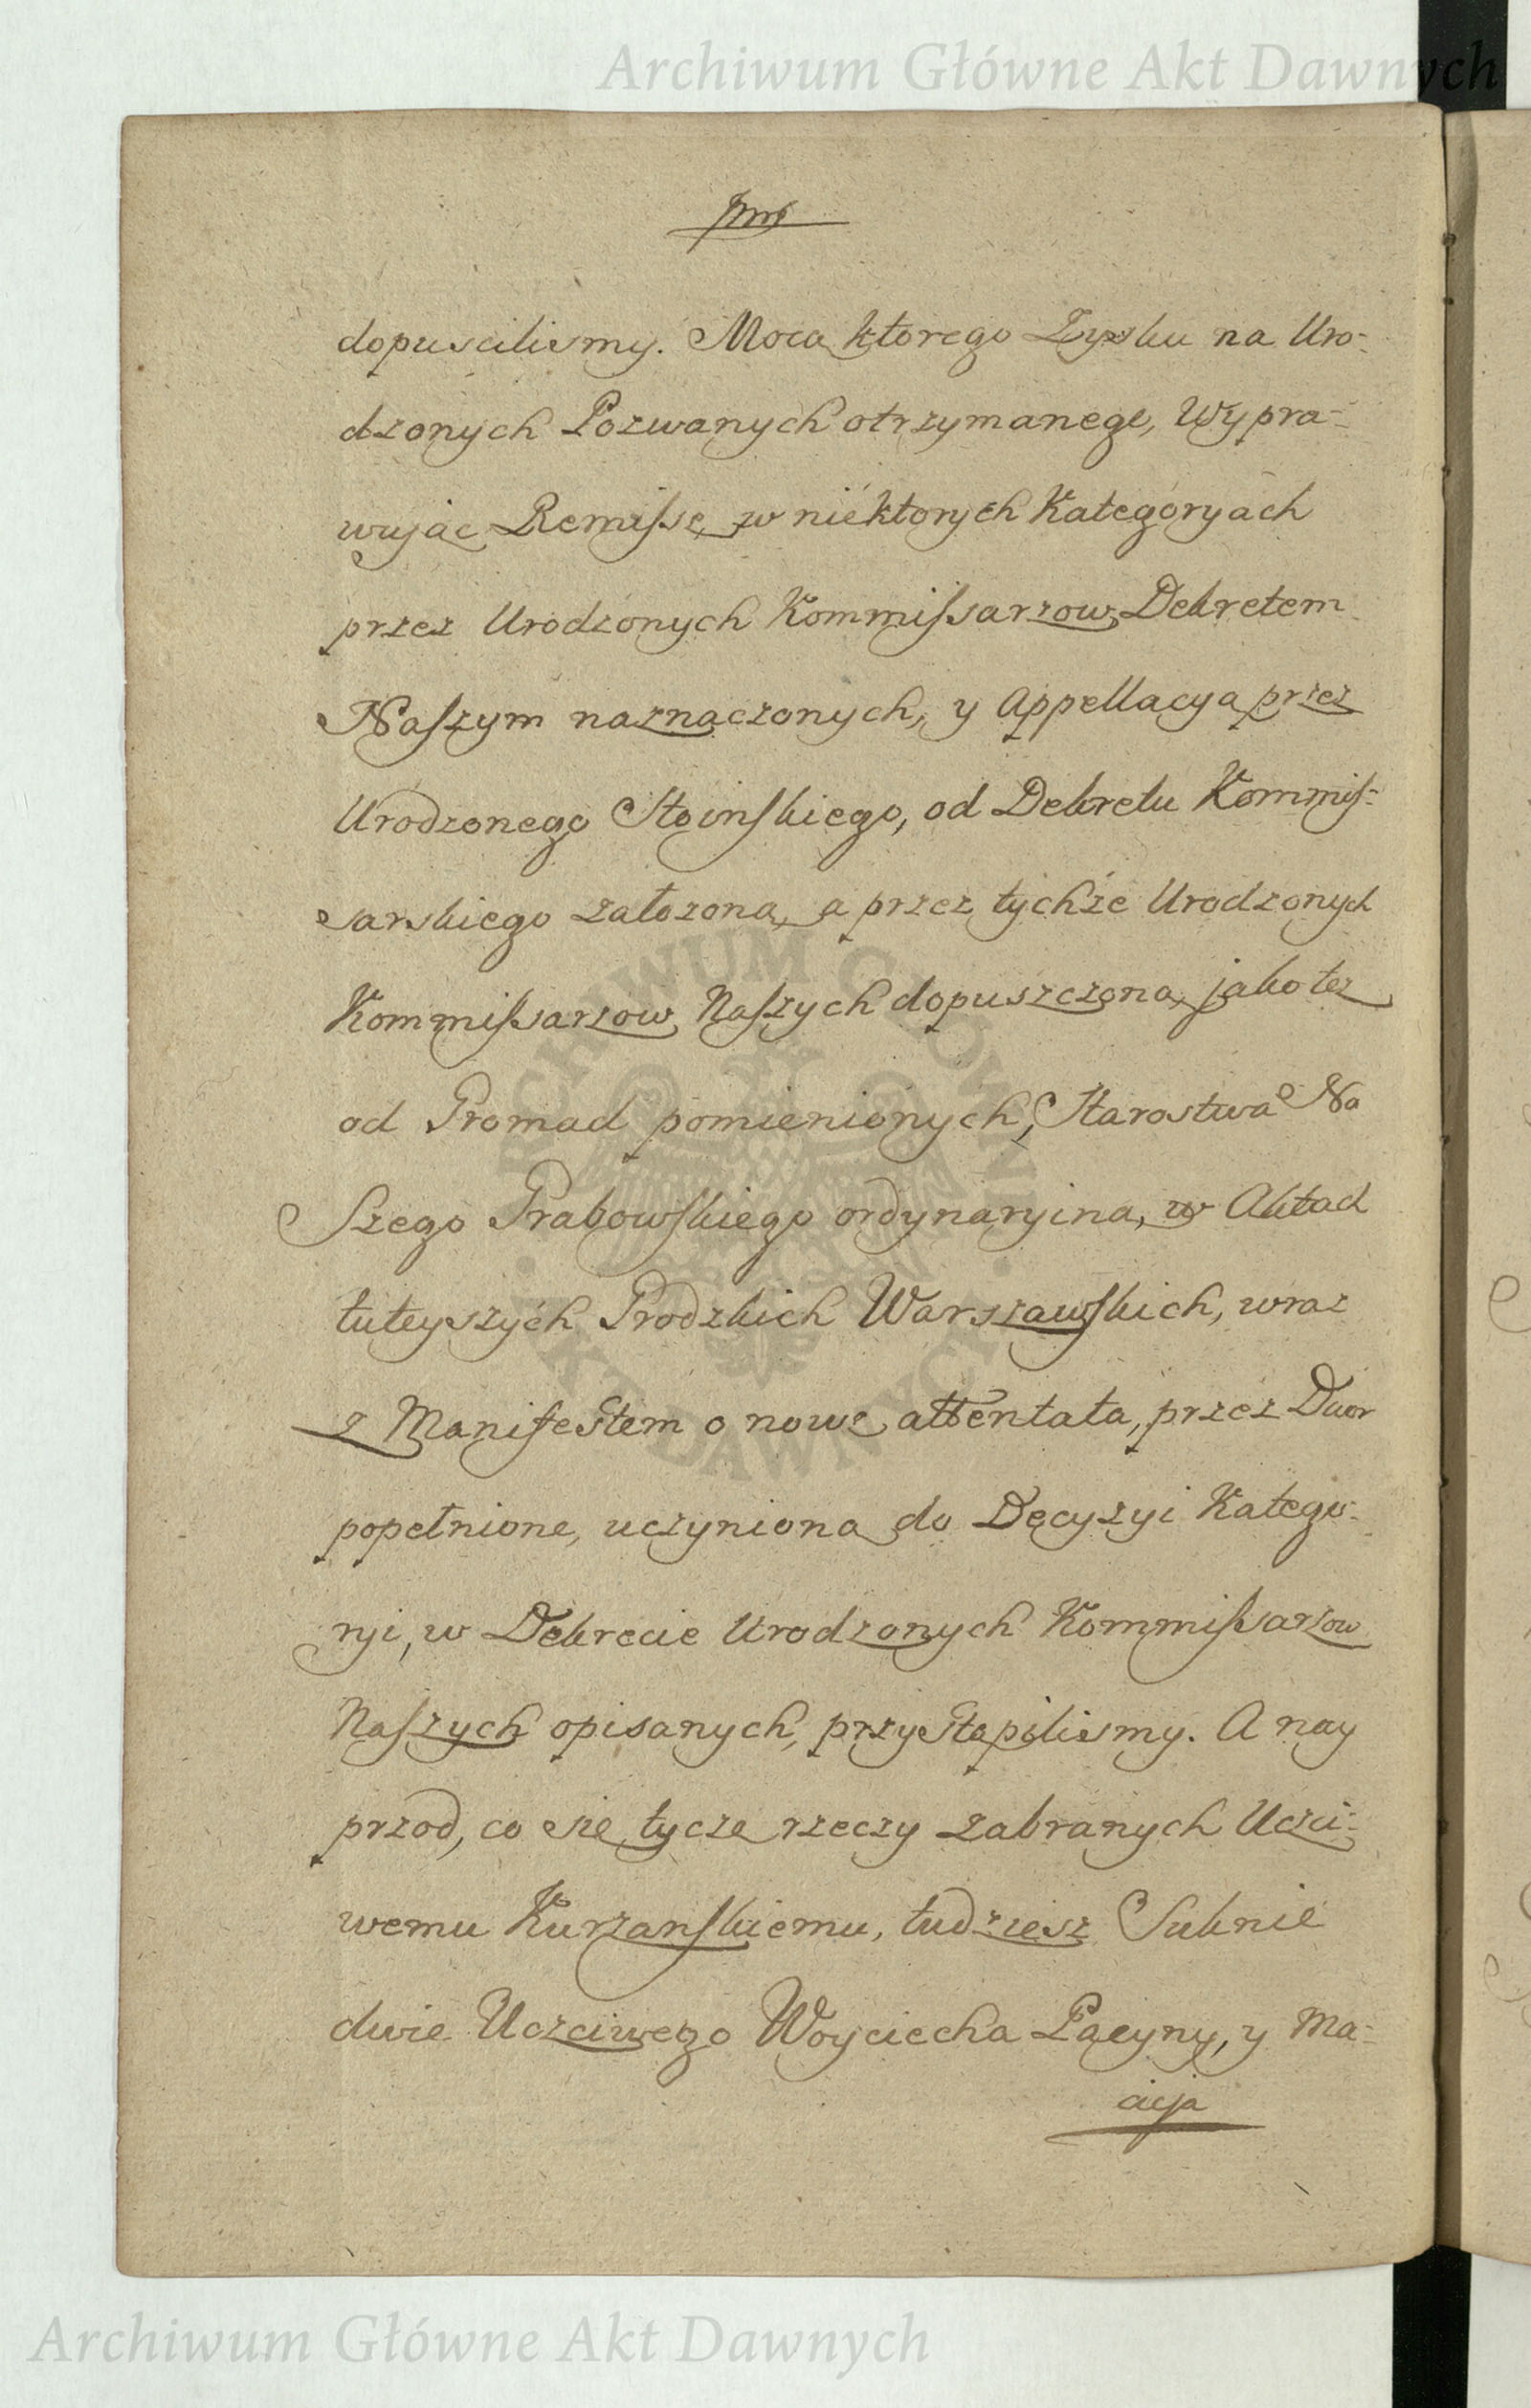 Archiwum Główne Akt Dawnych
dopuscilismy. Mocą ktorego Zysku na Uro-
dzonych Pozwanych otrzymanego, Wypra-
wując Remissę w niektorych Kategoryach
przez Urodzonych Kommissarzow Dekretem
Naszym naznaczonych, y Appellacyą przez
Urodzonego Stoinskiego, od Dekretu Kommis-
sarskiego załozoną, a przez tychże Urodzonych
Kommissarzow Naszych dopuszczoną, jako tez
od Gromad pomienionych, Starostwa Na
Szego Grabowskiego ordynaryiną, w Aktach
tuteyszych Grodzkich Warszawskich, wraz
z Manifestem o nowe attentata, przez Dwor
popełnione, uczynioną do Decyzyi Katego-
ryi, w Dekrecie Urodzonych Kommissarzow
Naszych opisanych, przystąpilismy. A nay
przod, co się tycze rzeczy zabranych Uczci-
wemu Kurzanskiemu, tudziesz Suknie
dwie Uczciwego Woyciecha Pacyny, y Ma-
cieja
ARCHIWUM GŁÓWNE AKT DAWNYCH
Archiwum Główne Akt Dawnych